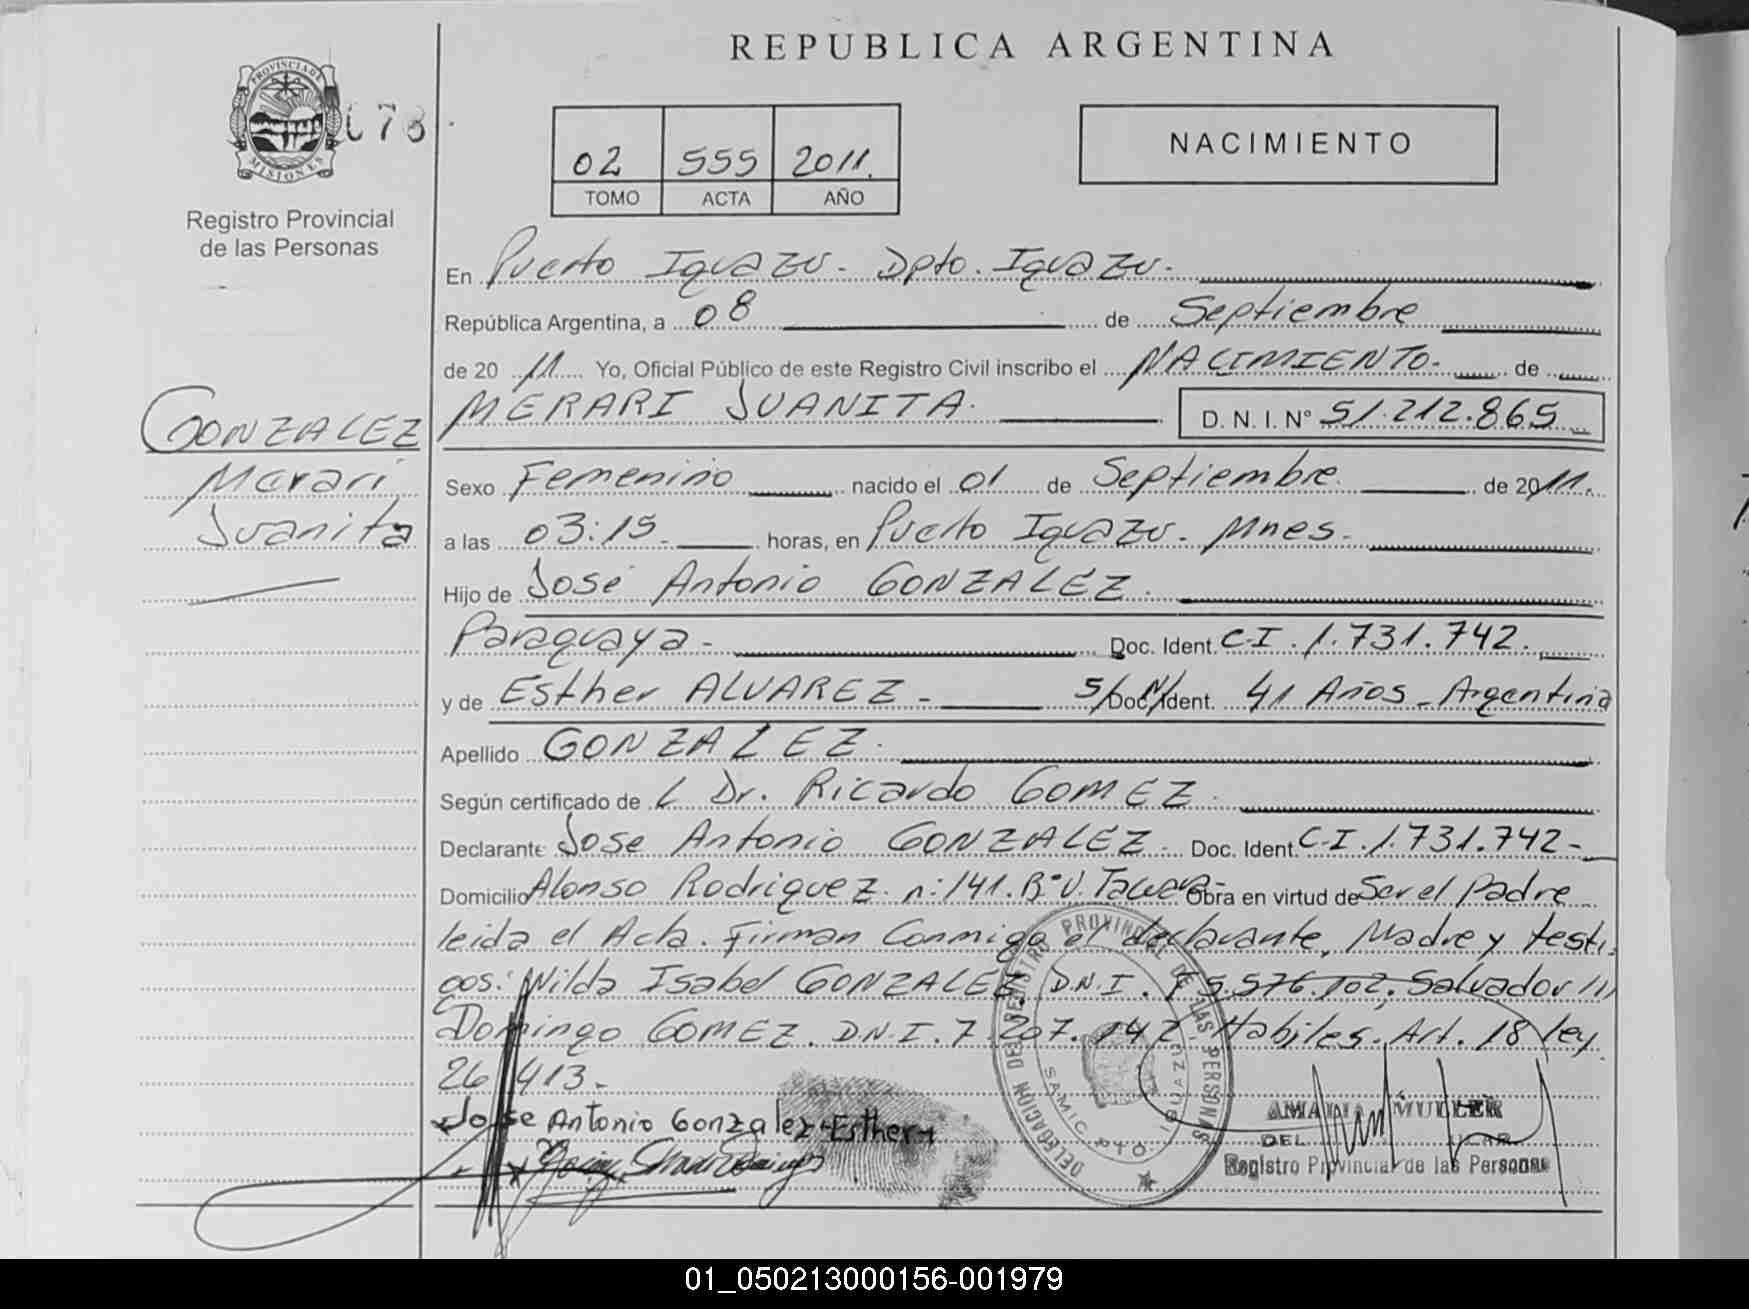 REPUBLICA ARGENTINA
PROVINCIA DE
MISIONES
678
Registro Provincial
de las Personas
02 555 2011.
TOMO ACTA AÑO
NACIMIENTO
En Puerto Iguazu - Dpto. Iguazu.
República Argentina, a 08 de Septiembre
de 20 11 Yo, Oficial Público de este Registro Civil inscribo el NACIMIENTO. de
MERARI JUANITA. D. N. I. Nº 51.212.865
GONZALEZ
Merari
Juanita
Sexo Femenino nacido el 01 de Septiembre. de 2011.
a las 03:15. horas, en Puerto Iguazu. Mnes.
Hijo de José Antonio GONZALEZ.
Paraguaya - Doc. Ident. C.I. 1.731.742.
y de Esther ALVAREZ - S/Doc/Ident. 41 Años - Argentina
Apellido GONZALEZ.
Según certificado de L Dr. Ricardo GOMEZ.
Declarante Jose Antonio GONZALEZ. Doc. Ident. C.I. 1.731.742-
Domicilio Alonso Rodriguez. n: 141. Bº V. Obra en virtud de Ser el Padre
leida el Acta. Firman Conmigo el declarante, Madre y testi
gos: Wilda Isabel GONZALEZ D.N.I. F5.576.102. Salvador
Domingo GOMEZ. D.N.I. 7.207.142 Habiles. Art. 18 ley
26 413.
Jose Antonio Gonzalez Esther
DELEGACION DEL REGISTRO PROVINCIAL DE LAS PERSONAS
SAMIC PTO. IGUAZU
MULLER
DEL
Registro Provincial de las Personas
01_050213000156-001979